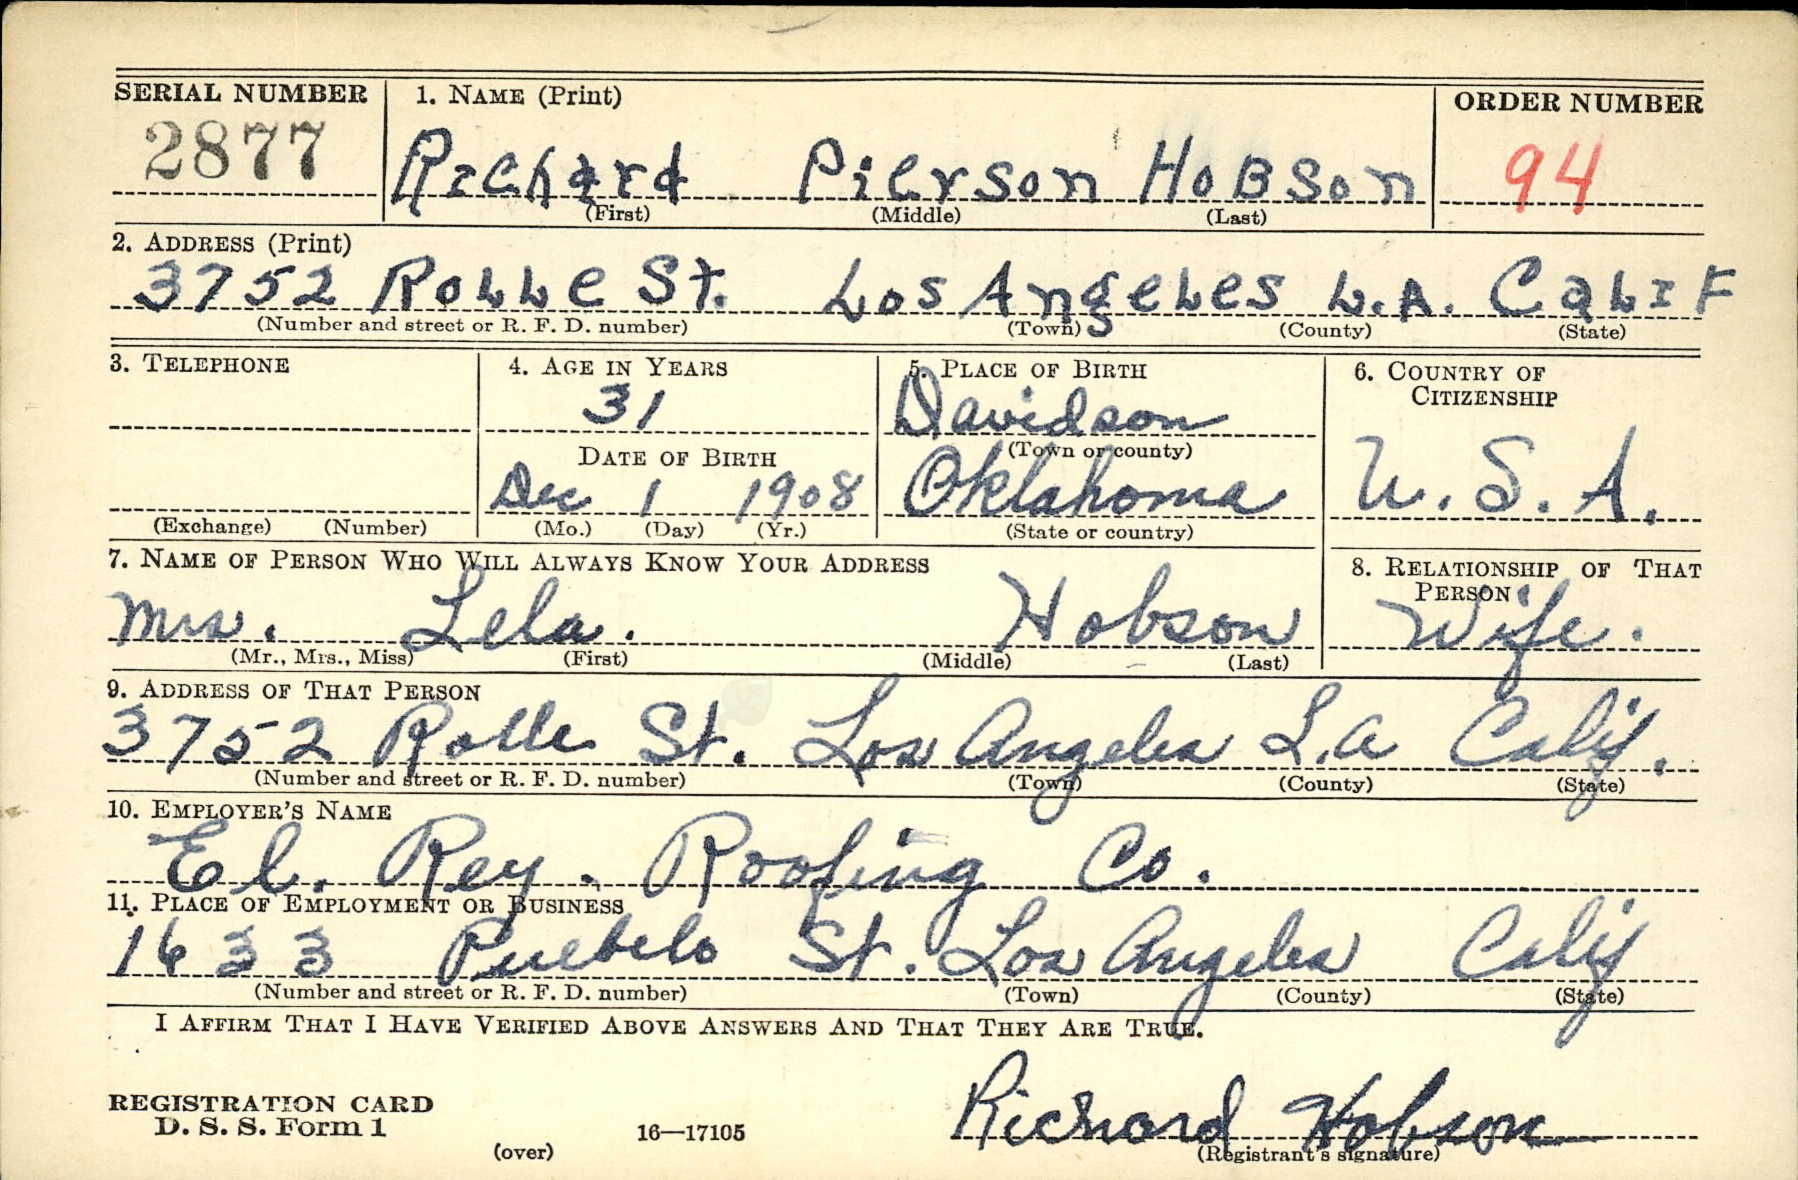 SERIAL NUMBER 1. NAME (Print) ORDER NUMBER
2877 Richard Pierson Hobson 94
(First) (Middle) (Last)
2. ADDRESS (Print)
3752 Rolle St. Los Angeles L.A. Calif
(Number and street or R. F. D. number) (Town) (County) (State)
3. TELEPHONE 4. AGE IN YEARS 5. PLACE OF BIRTH 6. COUNTRY OF CITIZENSHIP
31 Davidson
DATE OF BIRTH (Town or county)
Dec 1 1908 Oklahoma U. S. A.
(Exchange) (Number) (Mo.) (Day) (Yr.) (State or country)
7. NAME OF PERSON WHO WILL ALWAYS KNOW YOUR ADDRESS 8. RELATIONSHIP OF THAT PERSON
Mrs. Lela. Hobson Wife.
(Mr., Mrs., Miss) (First) (Middle) (Last)
9. ADDRESS OF THAT PERSON
3752 Rolle St. Los Angeles L.A Calif.
(Number and street or R. F. D. number) (Town) (County) (State)
10. EMPLOYER'S NAME
El. Rey. Roofing Co.
11. PLACE OF EMPLOYMENT OR BUSINESS
1633 Pueblo St. Los Angeles Calif
(Number and street or R. F. D. number) (Town) (County) (State)
I AFFIRM THAT I HAVE VERIFIED ABOVE ANSWERS AND THAT THEY ARE TRUE.
REGISTRATION CARD
D. S. S. Form 1 16—17105 Richard Hobson
(over) (Registrant's signature)